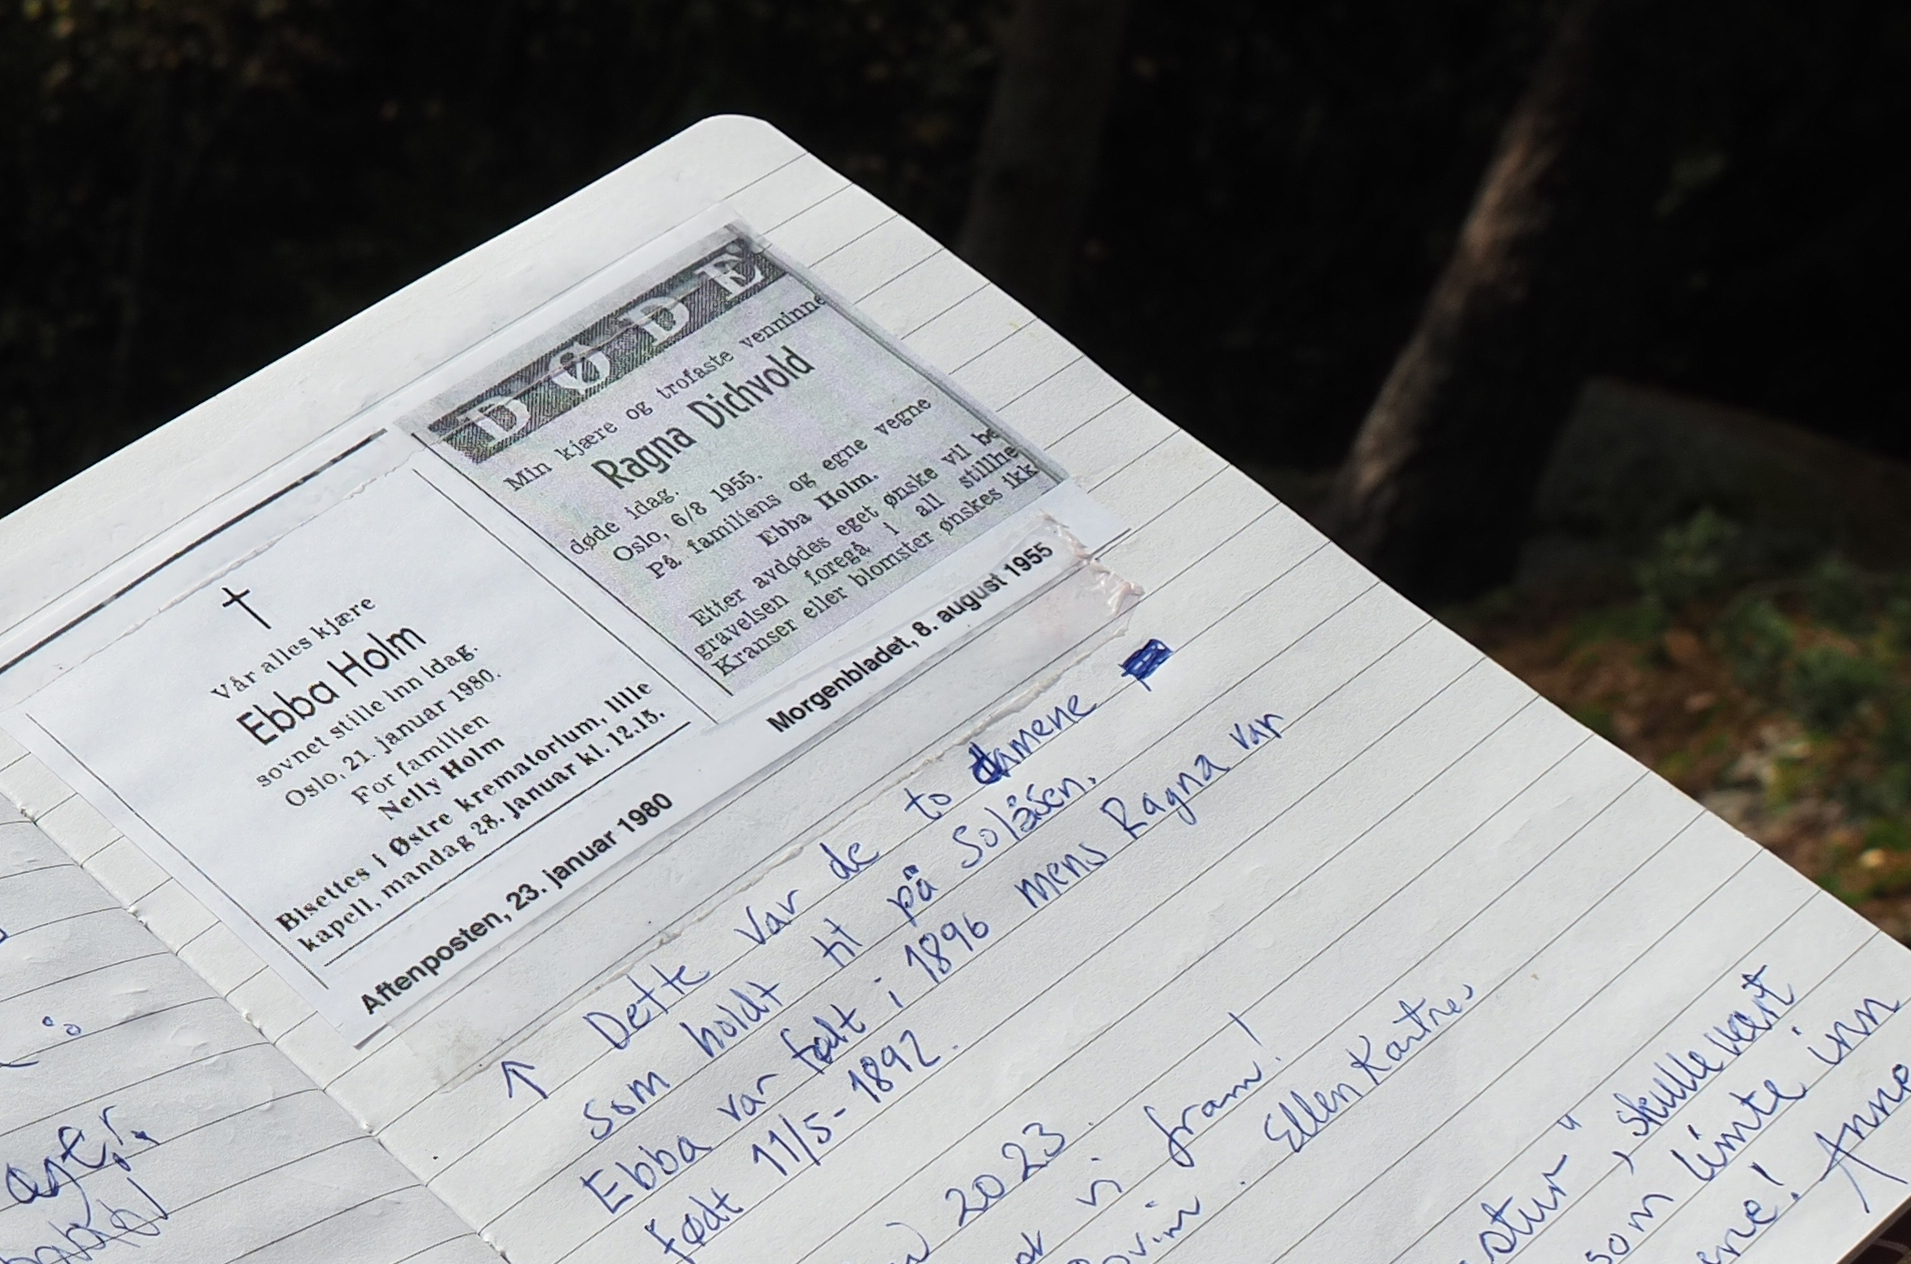 DØDE
Min kjære og trofaste venninne
Ragna Dichvold
døde idag.
Oslo, 6/8 1955.
På familiens og egne vegne
Ebba Holm.
Etter avdødes eget ønske vil be
gravelsen foregå i all stillhe
Kranser eller blomster ønskes ikk
Morgenbladet, 8. august 1955
Vår alles kjære
Ebba Holm
sovnet stille inn idag.
Oslo, 21. januar 1980.
For familien
Nelly Holm
Bisettes i Østre krematorium, lille
kapell, mandag 28. januar kl. 12.15.
Aftenposten, 23. januar 1980
↑ Dette var de to damene
som holdt til på Solåsen.
Ebba var født i 1896 mens Ragna var
født 11/5-1892.
2023.
vi fram!
Ellen Kartnes
", skulle vært
som limte inn
Anne